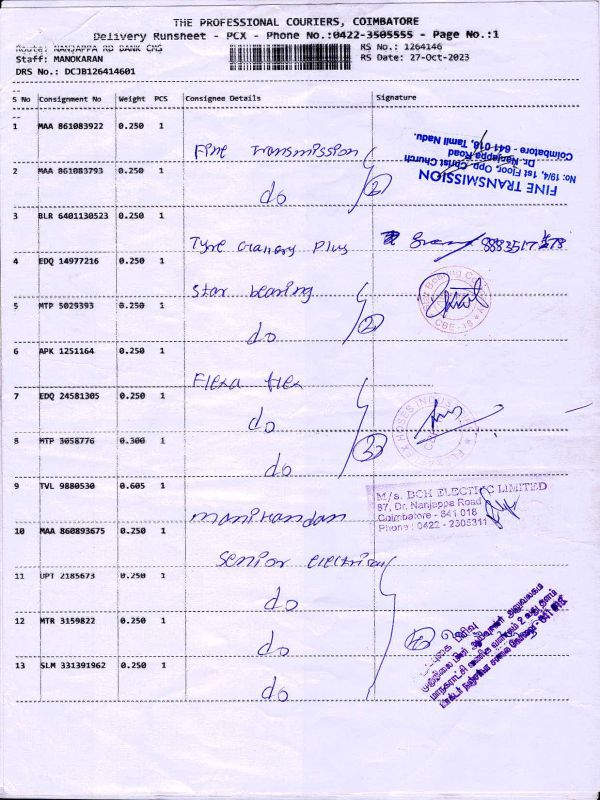 THE PROFESSIONAL COURIERS, COIMBATORE
Delivery Runsheet - PCX - Phone No.:0422-3505555 - Page No.:1
Route: NANJAPPA RD BANK CMS
RS No.: 1264146
Staff: MANOKARAN
RS Date: 27-Oct-2023
DRS No.: DCJB126414601
S No Consignment No Weight PCS Consignee Details Signature
1 MAA 861083922 0.250 1 Fine Transmission
2 MAA 861083793 0.250 1 do 2
FINE TRANSMISSION
No: 19/4, 1st Floor, Opp. Christ Church
Dr. Nanjappa Road
Coimbatore - 641 018, Tamil Nadu.
3 BLR 6401130523 0.250 1 Tyre Plus
4 EDQ 14977216 0.250 1 Star bearing
5 MTP 5029393 0.250 1 do 2
CBE-18
6 APK 1251164 0.250 1 Flexa flex
7 EDQ 24581305 0.250 1 do
8 MTP 3058776 0.300 1 do 3
HOSES
9 TVL 9880530 0.605 1 manikandan
M/s. BCH ELECTRIC LIMITED
87, Dr. Nanjappa Road
Coimbatore - 641 018
Phone : 0422 - 2305311
10 MAA 860893675 0.250 1 Senior electrical
11 UPT 2185673 0.250 1 do
12 MTR 3159822 0.250 1 do
13 SLM 331391962 0.250 1 do